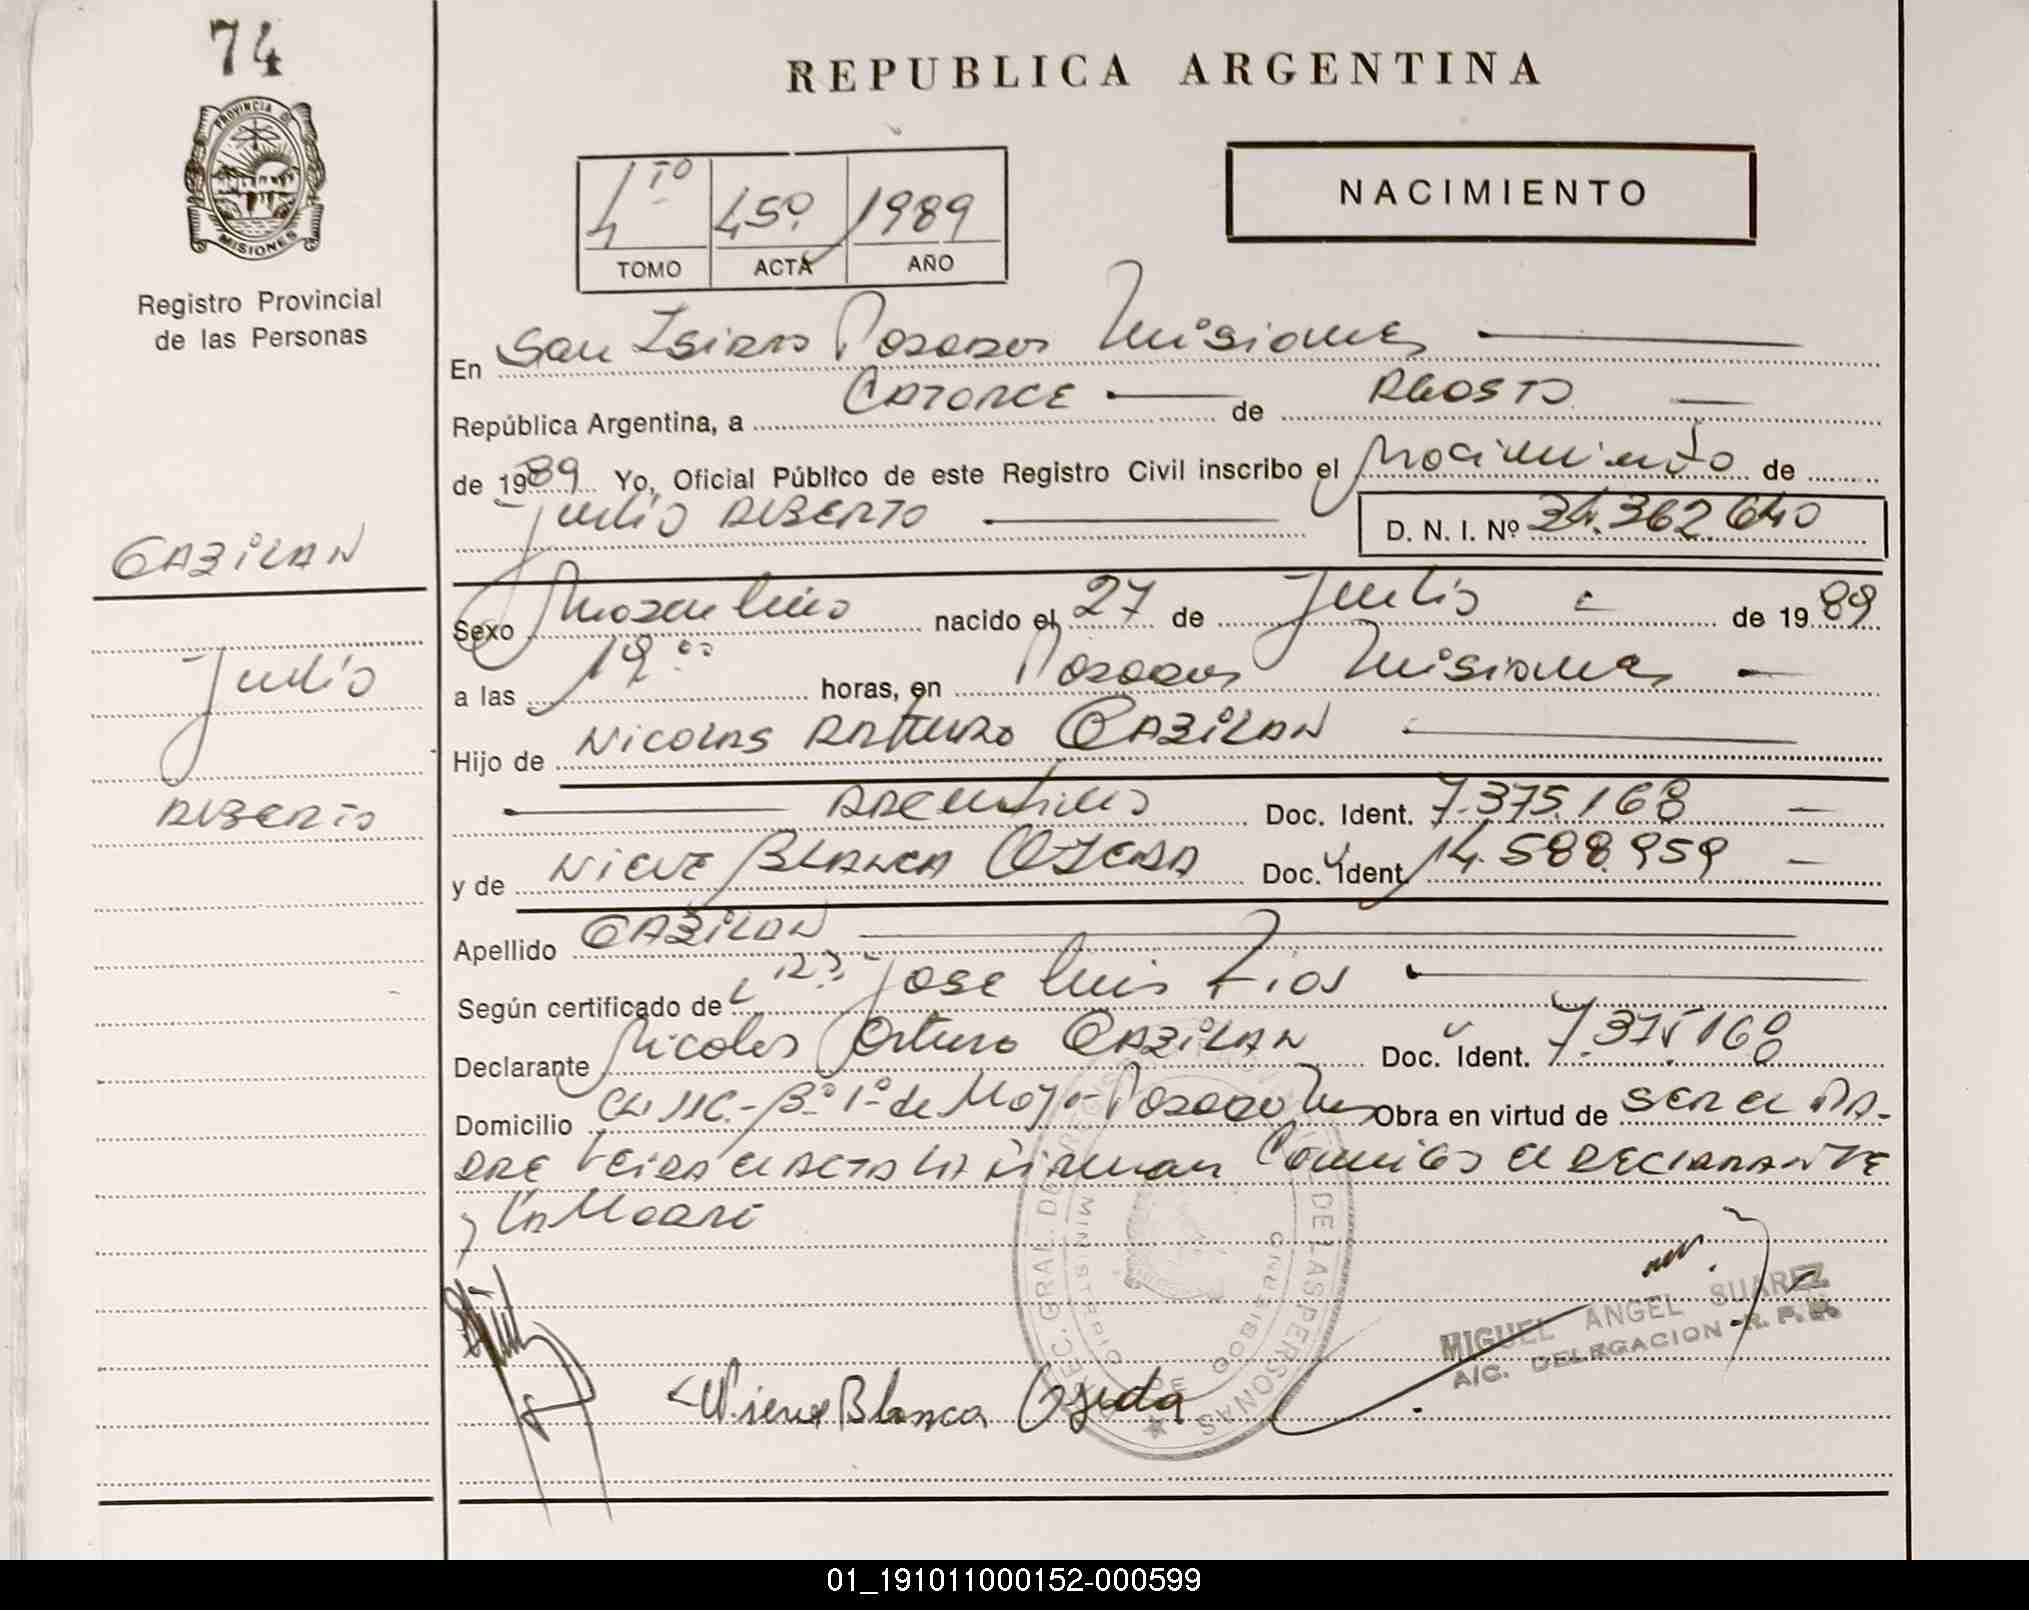 74
PROVINCIA DE
MISIONES
Registro Provincial
de las Personas
GABILAN
Julio
ALBERTO
REPUBLICA ARGENTINA
NACIMIENTO
4TO 450 1989
TOMO ACTA AÑO
En San Isidro Posadas Misiones
República Argentina, a CATORCE de AGOSTO
de 1989 Yo, Oficial Público de este Registro Civil inscribo el Nacimiento de
Julio ALBERTO D. N. I. Nº 34.362.640
Sexo Masculino nacido el 27 de Julio de 1989
a las 19.00 horas, en Posadas Misiones
Hijo de NICOLAS ARTURO GABILAN
ARGENTINO Doc. Ident. 7.375.168
y de NIEVE BLANCA OJEDA Doc. Ident. 14.588.959
Apellido GABILAN
Según certificado de Jose Luis Rios
Declarante Nicolas Arturo GABILAN Doc. Ident. 7.375.168
Domicilio Bº 1º de Mayo Posadas Mnes Obra en virtud de SER EL PA-
DRE Leida el ACTA la firman Conmigo el DECLARANTE
y la Madre
Nieve Blanca Ojeda
MIGUEL ANGEL SUAREZ
A/C. DELEGACION R. P. P.
DIREC. GRAL. DE REGISTRO DE LAS PERSONAS
MINISTERIO DE GOBIERNO
01_191011000152-000599